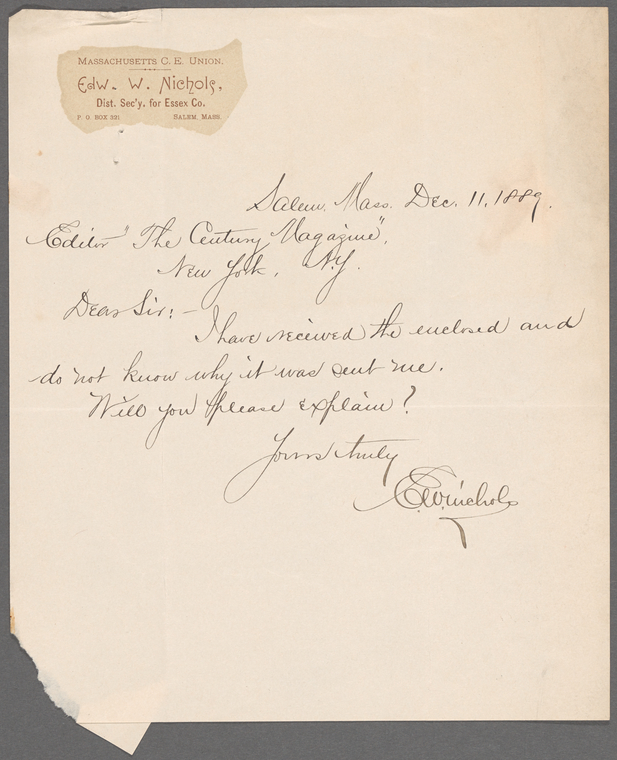 MASSACHUSETTS C. E. UNION.
Edw. W. Nichols,
Dist. Sec'y. for Essex Co.
P. O. BOX 391 SALEM, MASS.
Salem, Mass. Dec. 11, 1889.
Editor "The Century Magazine",
New York, N.Y.
Dear Sir: —
I have received the enclosed and
do not know why it was sent me.
Will you please explain?
Yours truly
E.W. Nichols